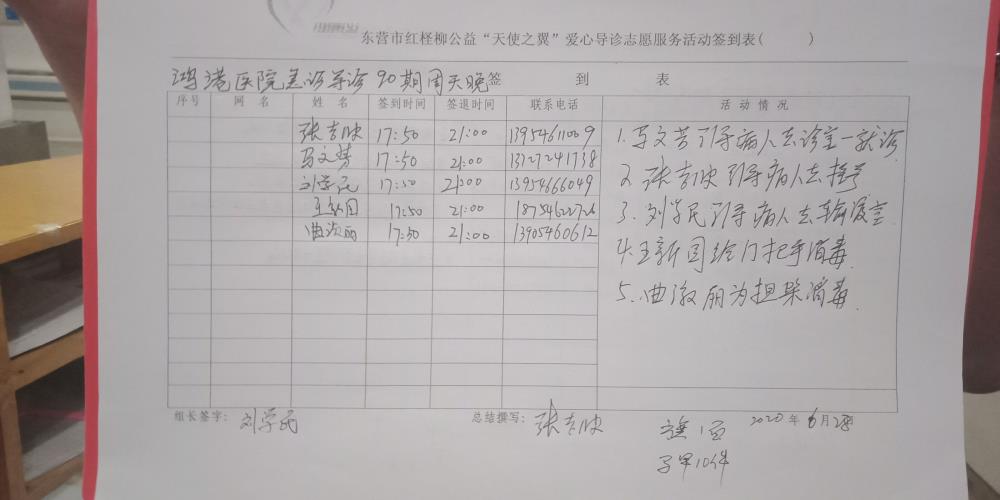 东营市红柽柳公益“天使之翼”爱心导诊志愿服务活动签到表( )
鸿港医院急诊导诊90期周天晚签 到 表
序号 网 名 姓 名 签到时间 签退时间 联系电话 活 动 情 况
张吉欣 17:50 21:00 13954611009
马文芳 17:50 21:00 13727241738
刘学民 17:50 21:00 13954666049
王新国 17:50 21:00
曲淑丽 17:50 21:00 13905460612
1.马文芳引导病人去诊室一就诊
2 张吉欣引导病人去挂号
3.刘学民引导病人去输液室
4.王新国给门把手消毒
5.曲淑丽为担架消毒.
组长签字: 刘学民 总结撰写: 张吉欣 2020年6月28